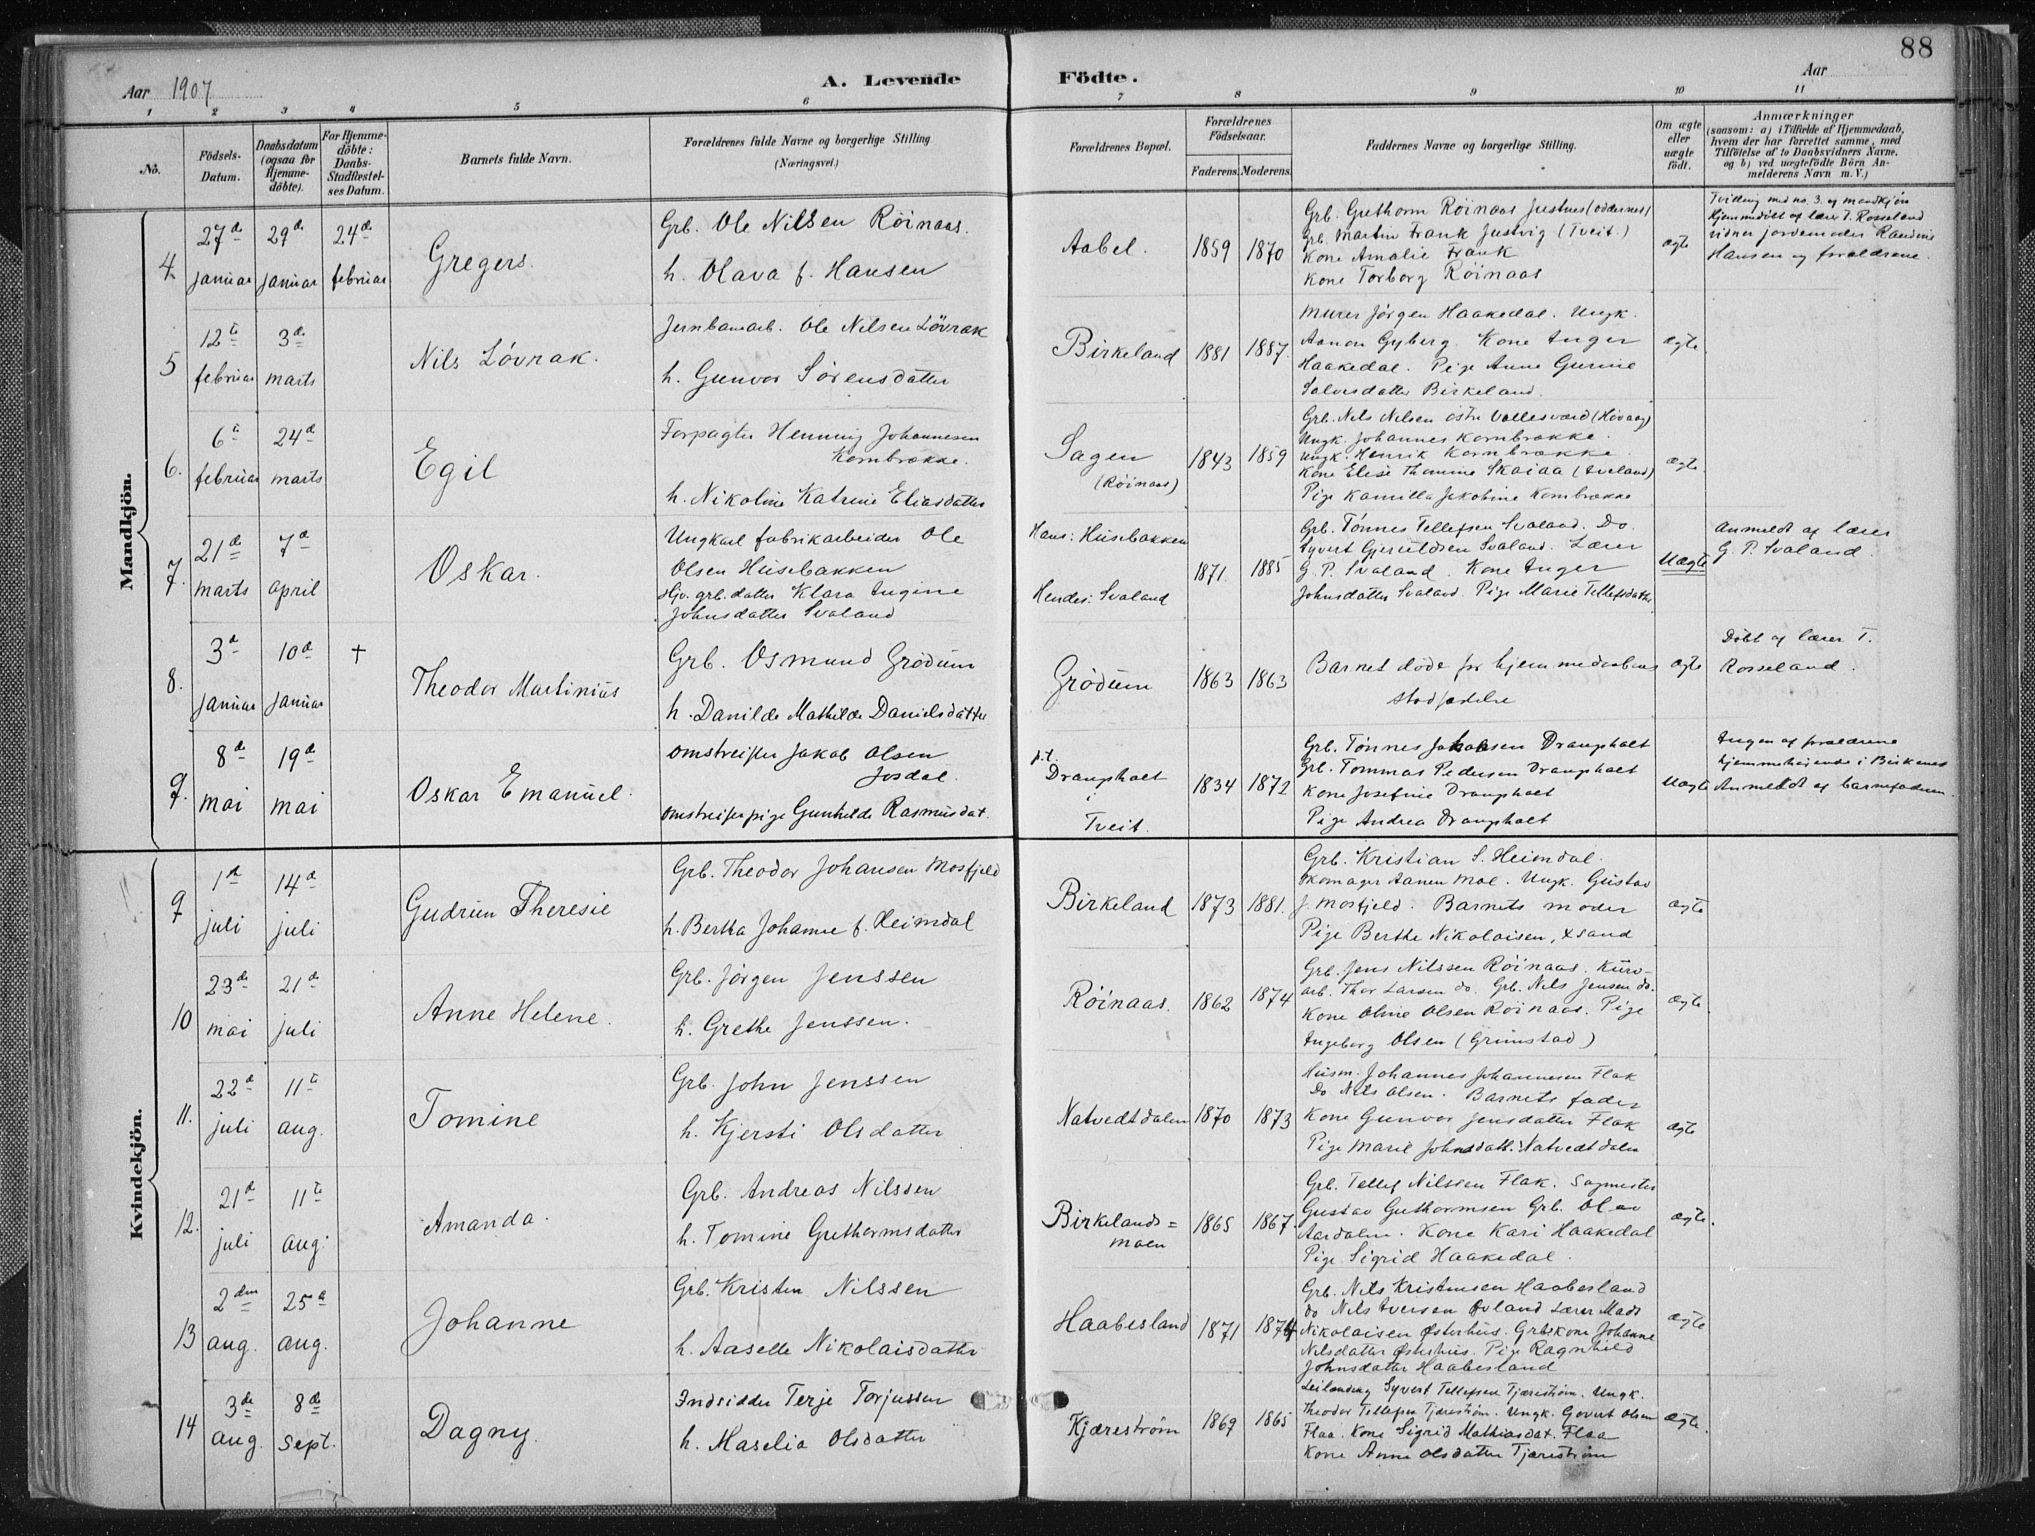 88
Aar 1907
A. Levende
Födte.
Aar
1 2 3 4 5 6 7 8 9 10 11
No.
Födsels-Datum.
Daabsdatum (ogsaa for Hjemme-döbte).
For Hjemme-döbte: Daabs-Stadfæstel-ses Datum.
Barnets fulde Navn.
Forældrenes fulde Navne og borgerlige Stilling (Næringsvei.)
Forældrenes Bopæl.
Forældrenes Födselsaar.
Faderens. Moderens.
Faddernes Navne og borgerlige Stilling.
Om ægte eller uægte födt.
Anmærkninger
(saasom: a) i Tilfælde af Hjemmedaab,
hvem der har forrettet samme, med
Tilföielse af to Daabsvidners Navne,
og b) ved uægtefödte Börn An-
melderens Navn m. V.)
Mandkjön.
4. 27de januar 29de januar 24de februar
Gregers.
Grb. Ole Nilsen Röinaas.
h. Olava f. Hansen
Aabel. 1859 1870
Grb. Grethorm Röinaas Justnes (oddernes)
Grb. Martin Frank Justvig (Tveit.)
Kone Amalie Frank
Kone Torborg Röinaas
ægte
Tvilling med no. 3. af mandkjön
Hjemmedöbt af lærer T. Rosseland
vidner jordemoder
Hansen og forældrene.
5 12te februar 3de marts
Nils Lövrak.
Jernbanearb. Ole Nilsen Lövrak
h. Gunvor Sörensdatter
Birkeland 1881 1887.
Murer Jörgen Haakedal. Ungk.
Aanon Gyberg. Kone Inger
Haakedal. Pige Anne Gurine
Salvesdatter Birkeland.
ægte
6. 6te februar 24de marts
Egil
Forpagter Henning Johannesen
Kornbrække.
h. Nikoline Katrine Eliasdatter
Sagen
(Röinaas)
1843 1859
Grb. Nils Nilsen östre Vallesværd (Hövaag)
Ungk. Johannes Kornbrække.
Ungk. Henrik Kornbrække
Kone Elise Thomine Skaiaa (Iveland)
Pige Kamilla Jakobine Kornbrække
ægte.
7. 21de marts 7de april
Oskar.
Ungkarl fabrikarbeider Ole
Olsen Husebakken
Hjv. grb. datter Klara Ingine
Johnsdatter Svaland
Hans: Husebakken
Hendes: Svaland
1871. 1885
Grb. Tönnes Tellefsen Svaland. Do.
Syvert Gjeruldsen Svaland. Lærer
G. P. Svaland. Kone Inger
Johnsdatter Svaland. Pige Marie Tellefsdatter
Uægte
Anmeldt af lærer
G. P. Svaland.
8. 3de januar 10de januar +
Theodor Martinius
Grb. Osmund Grödum
h. Danilde Mathilde Danielsdatter
Grödum 1863 1863
Barnet döde för hjemmedaabens
stadfæstelse
ægte
Döbt af lærer T.
Rosseland.
9. 8de mai 19de mai
Oskar Emanuel.
Omstreifer Jakob Olsen
Josdal.
Omstreiferpige Gunhilde Rasmusdat.
p.t.
Drangsholt
i
Tveit.
1834 1872
Grb. Tönnes Jakobsen Drangsholt
Grb. Tommas Pedersen Drangsholt
Kone Josefine Drangsholt
Pige Andrea Drangsholt
Uægte
Ingen af forældrene
hjemmehörende i Birkenes
Anmeldt af barnefaderen.
Kvindekjön.
9 1ste juli 14de juli
Gudrun Theresie
Grb. Theodor Johansen Mosfjeld
h. Bertha Johanne f. Heimdal
Birkeland 1873 1881.
Grb. Kristian S. Heimdal.
Skomager Aanen Moe. Ungk. Gustav
J. Mosfjeld. Barnets moder
Pige Berthe Nikolaisen, Xsand
ægte
10 23de mai 21de juli
Anne Helene.
Grb. Jörgen Jenssen
h. Grethe Jenssen.
Röinaas. 1862 1874
Grb. Jens Nilssen Röinaas. Kurv-
arb. Thor Larsen do. Grb. Nils Jensen do.
Kone Oline Olsen Röinaas. Pige
Ingeborg Olsen (Grimstad)
ægte.
11. 22de juli 11te aug.
Tomine
Grb. John Jenssen
h. Kjersti Olsdatter
Natvedtdalen 1870 1873
Husm. Johannes Johannesen Flak
Do Nils Olsen. Barnets fader
Kone Gunvor Jensdatter Flak
Pige Marie Johnsdatt. Natvedtdalen
ægte
12. 21de juli 11te aug.
Amanda.
Grb. Andreas Nilssen
h. Tomine Guthormsdatter
Birkelands=
moen
1865 1867.
Grb. Tellef Nilssen Flak. Sagmester
Gustav Guthormsen Grb. Olav
Aardalen. Kone Kari Haakedal
Pige Sigrid Haakedal.
ægte.
13 2den aug. 25de aug.
Johanne
Grb. Kristen Nilssen
h. Aaselle Nikolaisdatter
Haabesland 1871 1874
Grb. Nils Kristensen Haabesland
do Nils Iversen Övland Lærer Mads
Nikolaisen Österhus. Grb.kone Johanne
Nilsdatter Österhus. Pige Ragnhild
Johnsdatter Haabesland
ægte
14 3de aug. 8de Sept.
Dagny.
Indsidder Terje Torjussen
h. Maselia Olsdatter
Kjæreström 1869 1865
Leilænding Syvert Tellefsen Tjæreström. Ungk.
Theodor Tellefsen Tjæreström. Ungk. Govert Olsen
Flaa. Kone Sigrid Mathiasdat. Flaa
Kone Anne Olsdatter Tjæreström
ægte.